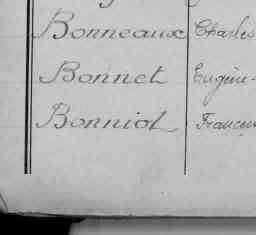 Bonneaux Charles
Bonnet Eugène-
Bonniot